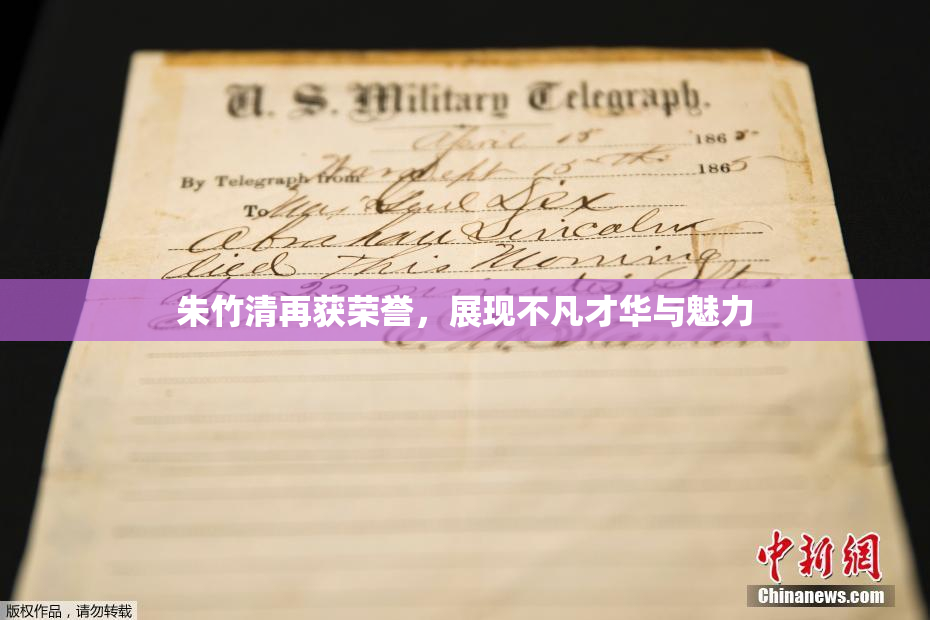 U. S. Military Telegraph.
April 15 1865
By Telegraph from War Dept 15th 1865
To Maj Genl Dix
Abraham Lincoln
died This Morning
22 minutes after
朱竹清再获荣誉，展现不凡才华与魅力
E. M. Stanton
中新网
Chinanews.com
版权作品，请勿转载